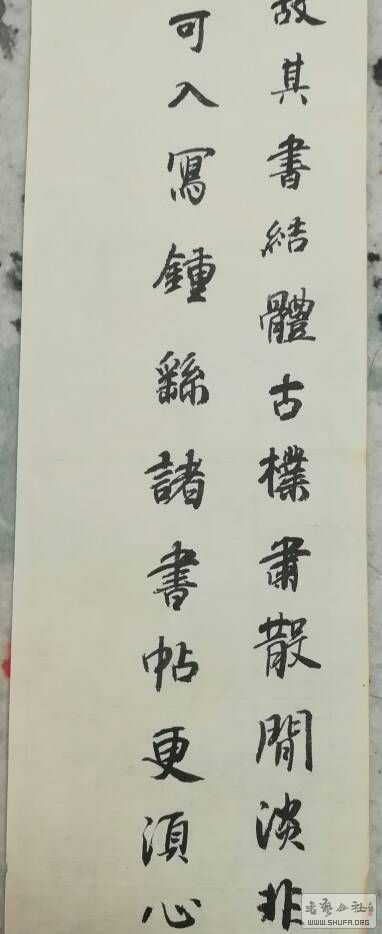 故其書結體古樸肅散閒淡非
可入寫鍾繇諸書帖更須心
书艺公社
WWW.SHUFA.ORG